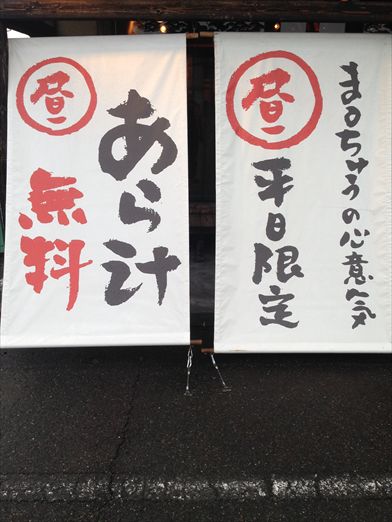 まるちゅうの心意気
昼
平日限定
昼
あら汁
無料